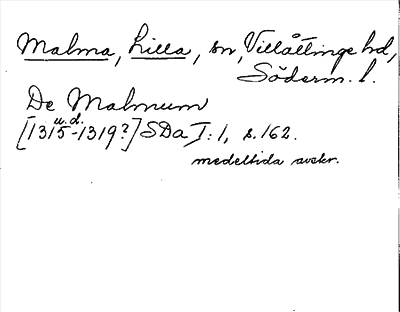 Malma, Lilla, sn, Villåttinge hd,
Söderm. l.
De Malmum
u.d.
[1315-1319?] SDa I:1, s. 162.
medeltida avskr.